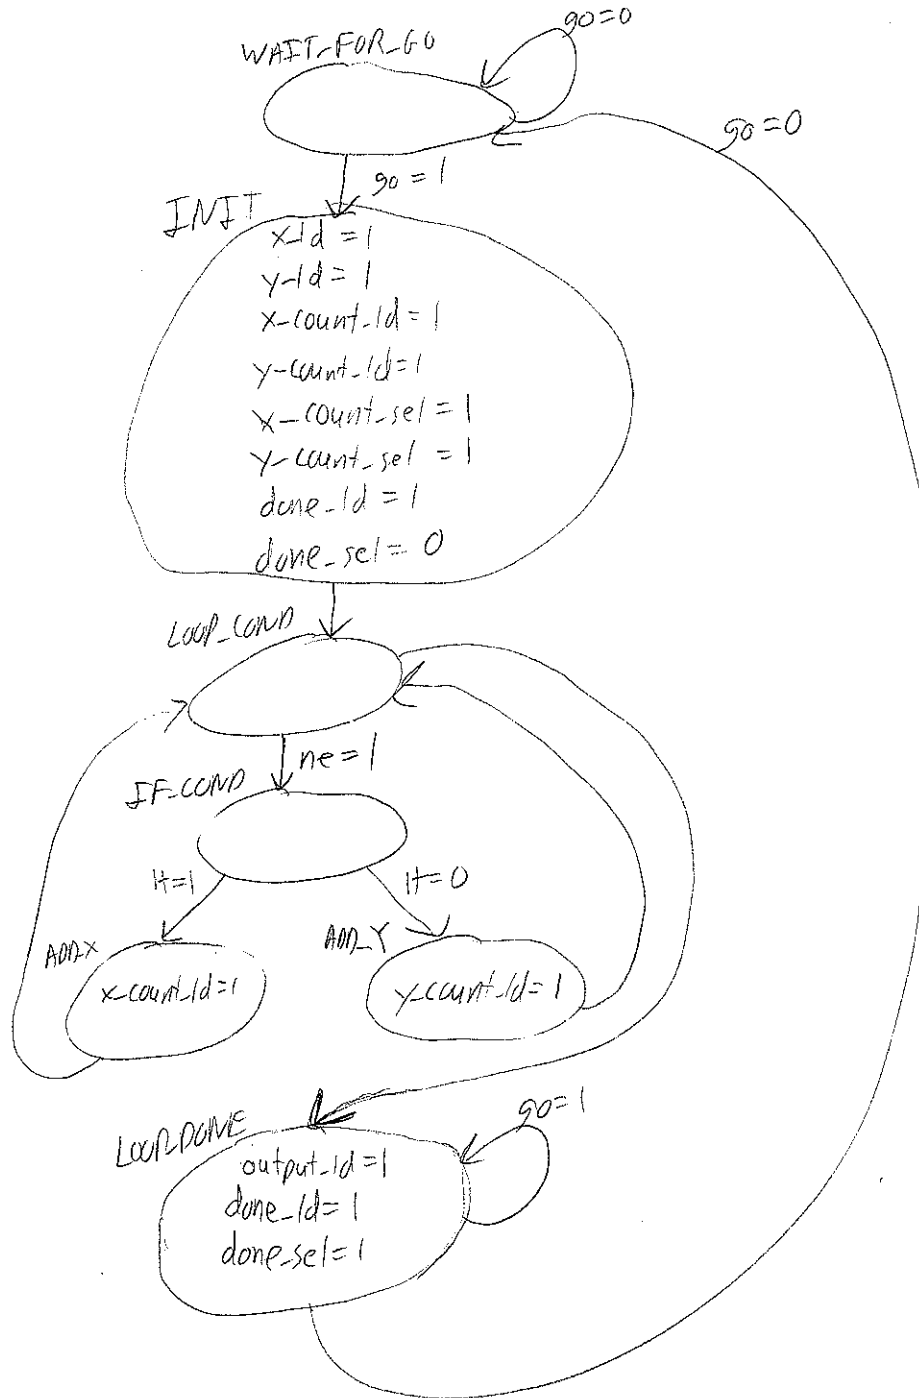 go=0
WAIT_FOR_GO
go=0
go=1
INIT
x_ld=1
y_ld=1
x_count_ld=1
y_count_ld=1
x_count_sel=1
y_count_sel=1
done_ld=1
done_sel=0
LOOP_COND
ne=1
IF_COND
lt=1
lt=0
ADD_X
ADD_Y
x_count_ld=1
y_count_ld=1
go=1
LOOP_DONE
output_ld=1
done_ld=1
done_sel=1